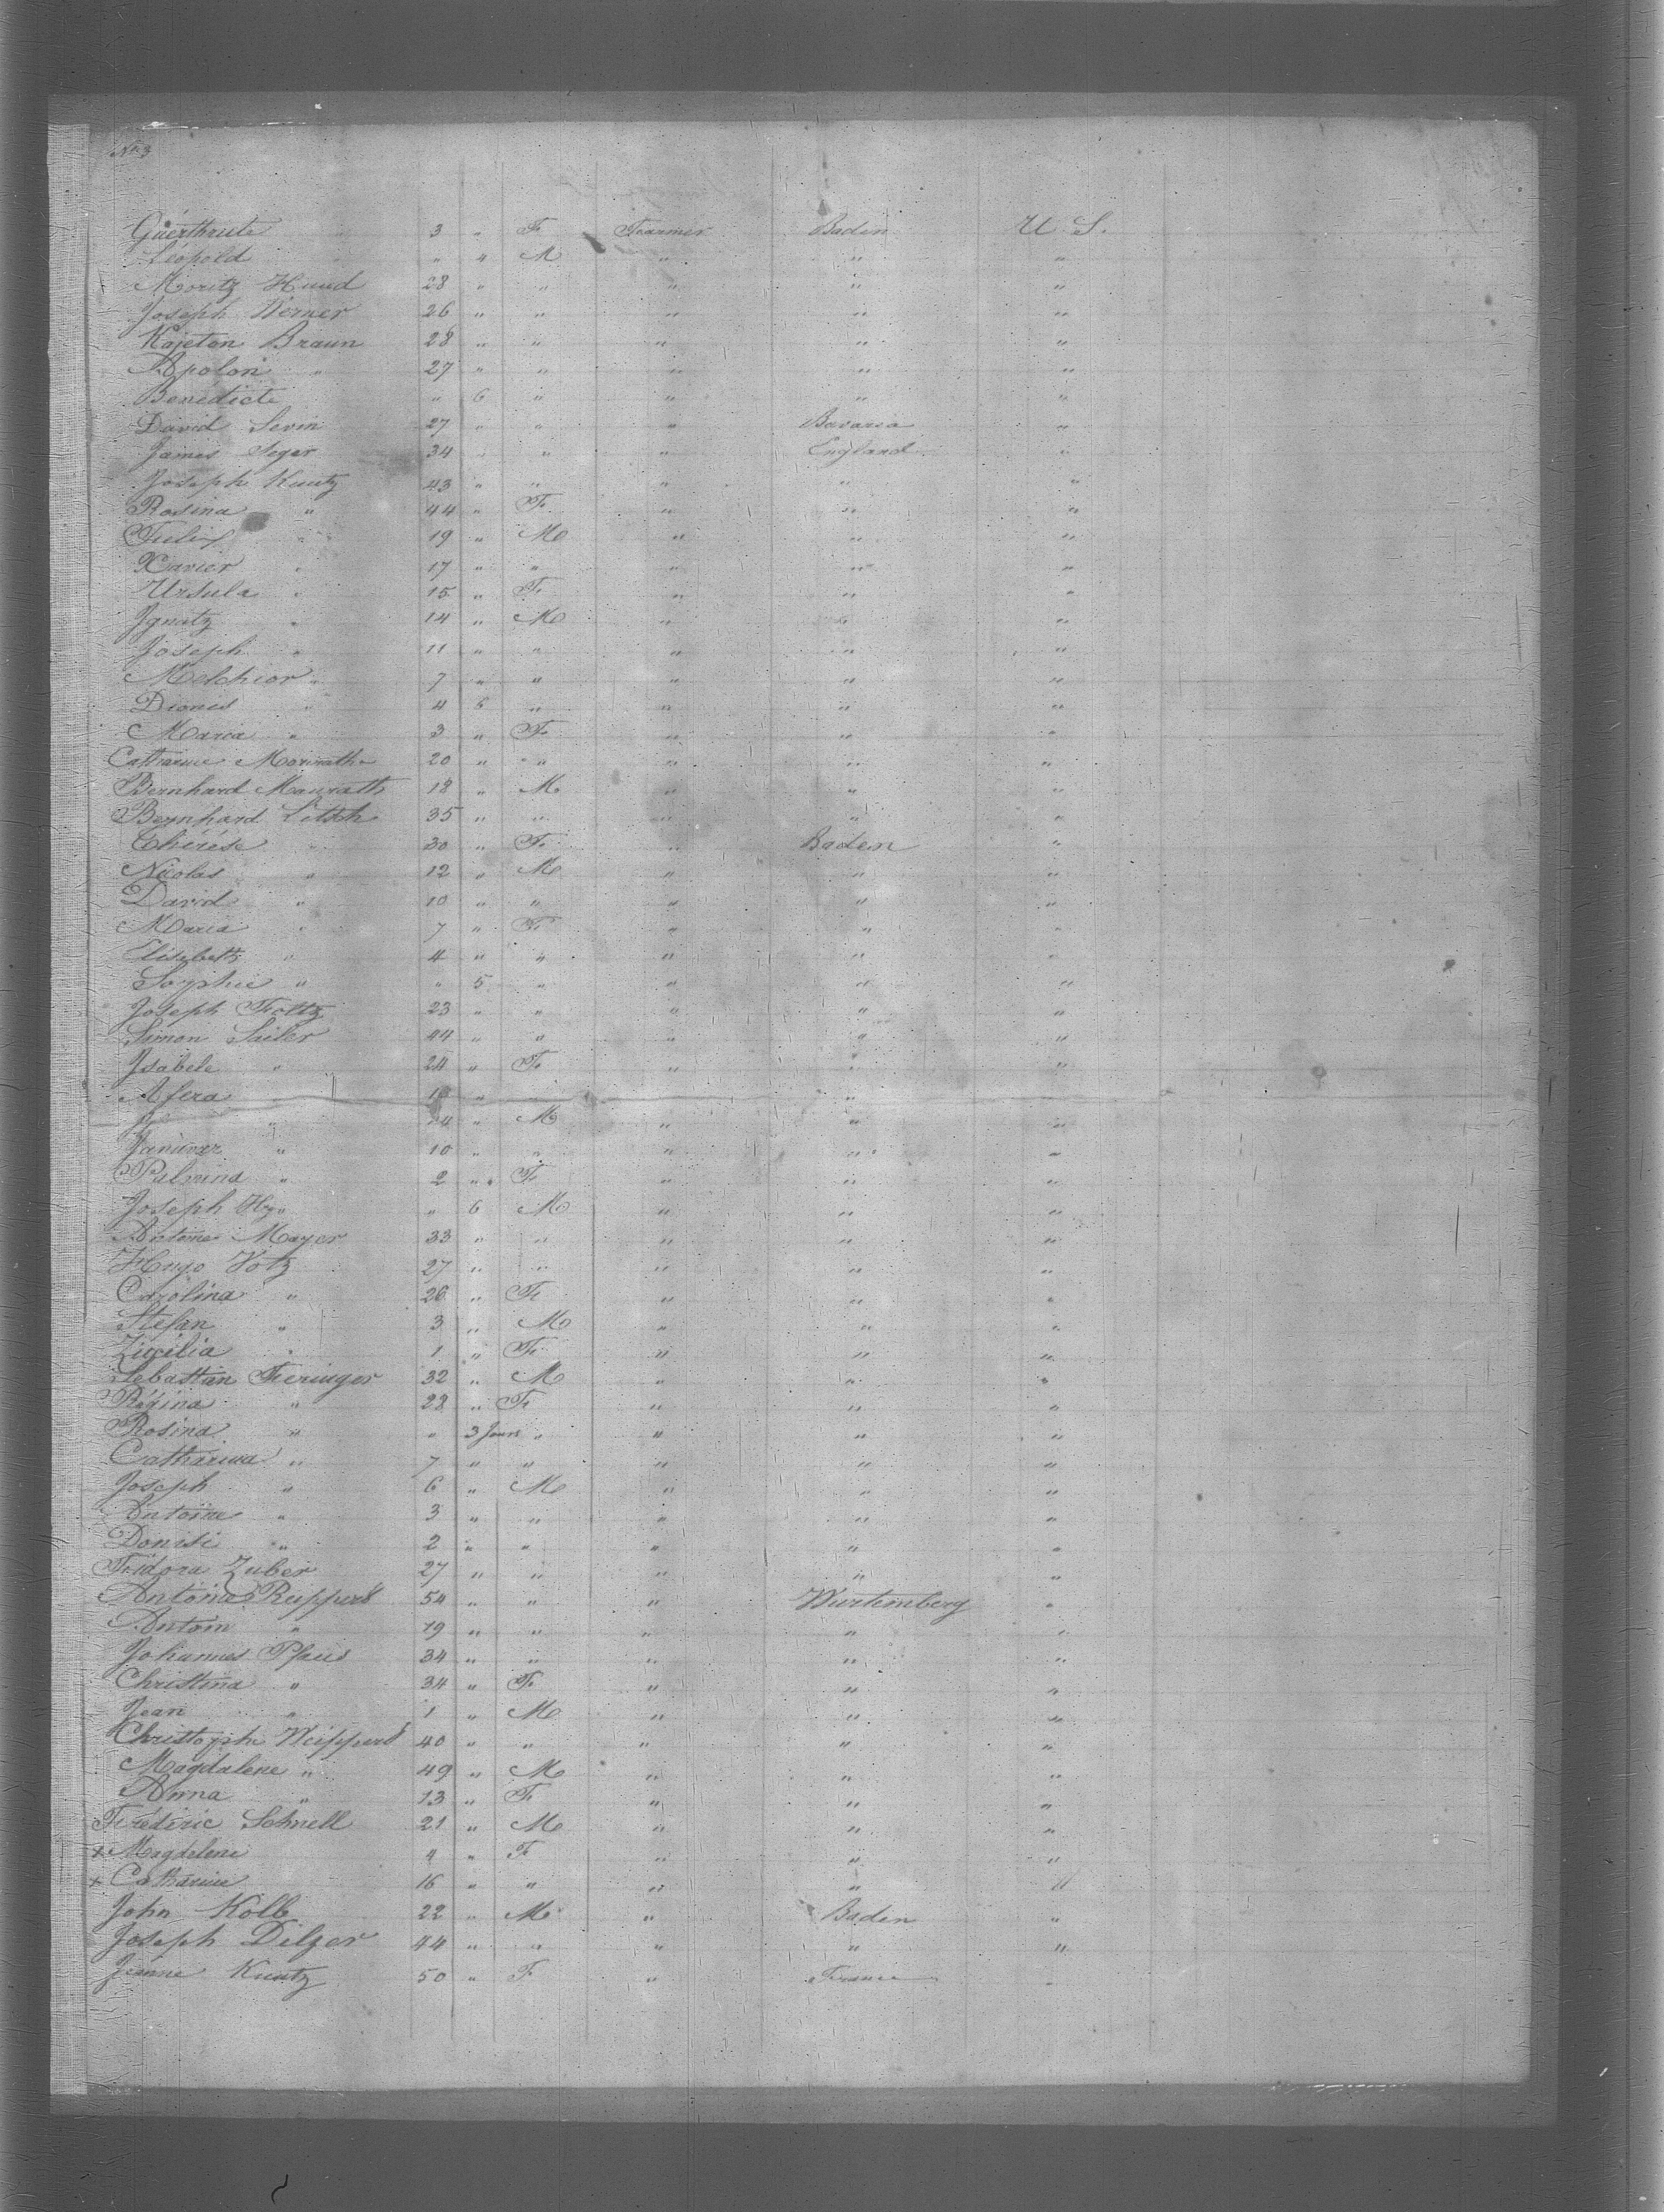 No 3
Guerthrute 3 " F Fearmer Baden U S.
Léopold " 4 M " " "
Moritz Hund 28 " " " " "
Joseph Werner 26 " " " " "
Kajeton Braun 28 " " " " "
Apolon " 27 " " " " "
Benedicte " 6 " " " "
David Levin 27 " " " Bavaria "
James Seger 34 " " " England "
Joseph Kuntz 43 " " " " "
Rosina " 44 " F " " "
Felix " 19 " M " " "
Xavier " 17 " " " " "
Ursula " 15 " F " " "
Ignatz " 14 " M " " "
Joseph " 11 " " " " "
Melchior " 7 " " " " "
Diones " 4 6 " " " "
Maria " 3 " F " " "
Catharine 20 " " " " "
Bernhard Maurath 18 " M " " "
Bernhard Litsch 35 " " " " "
Thérése " 30 " F " Baden "
Nicolas " 12 " M " " "
David " 10 " " " " "
Maria " 7 " F " " "
Elisabeth " 4 " " " " "
Sophie " " 5 " " " "
Joseph Foltz 23 " " " " "
Simon Sailer 44 " " " " "
Isabele " 24 " F " " "
Afera " " " "
" " M " " "
Januver " 10 " " " " "
Palmina " 2 " F " " "
Joseph Hy " " 6 M " " "
Antoine Mayer 33 " " " " "
Hugo Votz 27 " " " " "
Carolina " 26 " F " " "
Stefan " 3 " M " " "
Zicilia " 1 " F " " "
Sebastian Feringer 32 " M " " "
Régina " 28 " F " " "
Rosina " " 3 Jours " " " "
Catharina " 7 " " " " "
Joseph " 6 " M " " "
Antoine " 3 " " " " "
Donisi " 2 " " " " "
Fridora Zuber 27 " " " " "
Antoine Ruppert 54 " " " Wurtemberg "
Antoin " 19 " " " " "
Johannes Pfaus 34 " " " " "
Christina " 34 " F " " "
Jean " 1 " M " " "
Christophe Weippert 40 " " " " "
Magdalene " 49 " M " " "
Anna " 13 " F " " "
Fréderic Schnell 21 " M " " "
x Magdelene 4 " F " " "
x Catharine 16 " " " " "
John Kolb 22 " M " Baden "
Joseph Dilger 44 " " " " "
Jeanne Kuntz 50 " F " France "